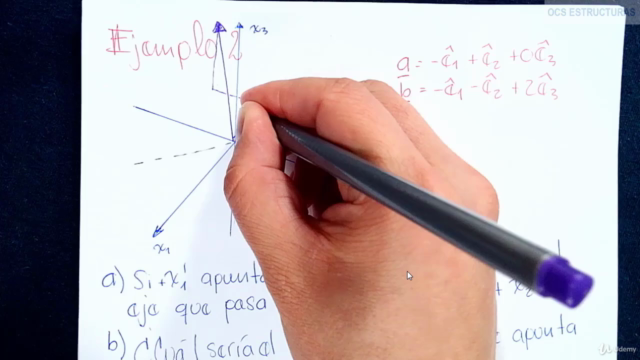 OCS ESTRUCTURAS
Ejemplo 2
x₃
a = -ê₁ + ê₂ + 0ê₃
b = -ê₁ - ê₂ + 2ê₃
x₁
a) Si +x₁' apunta
eje que pasa
b) ¿Cuál sería el
apunta
ûdemy